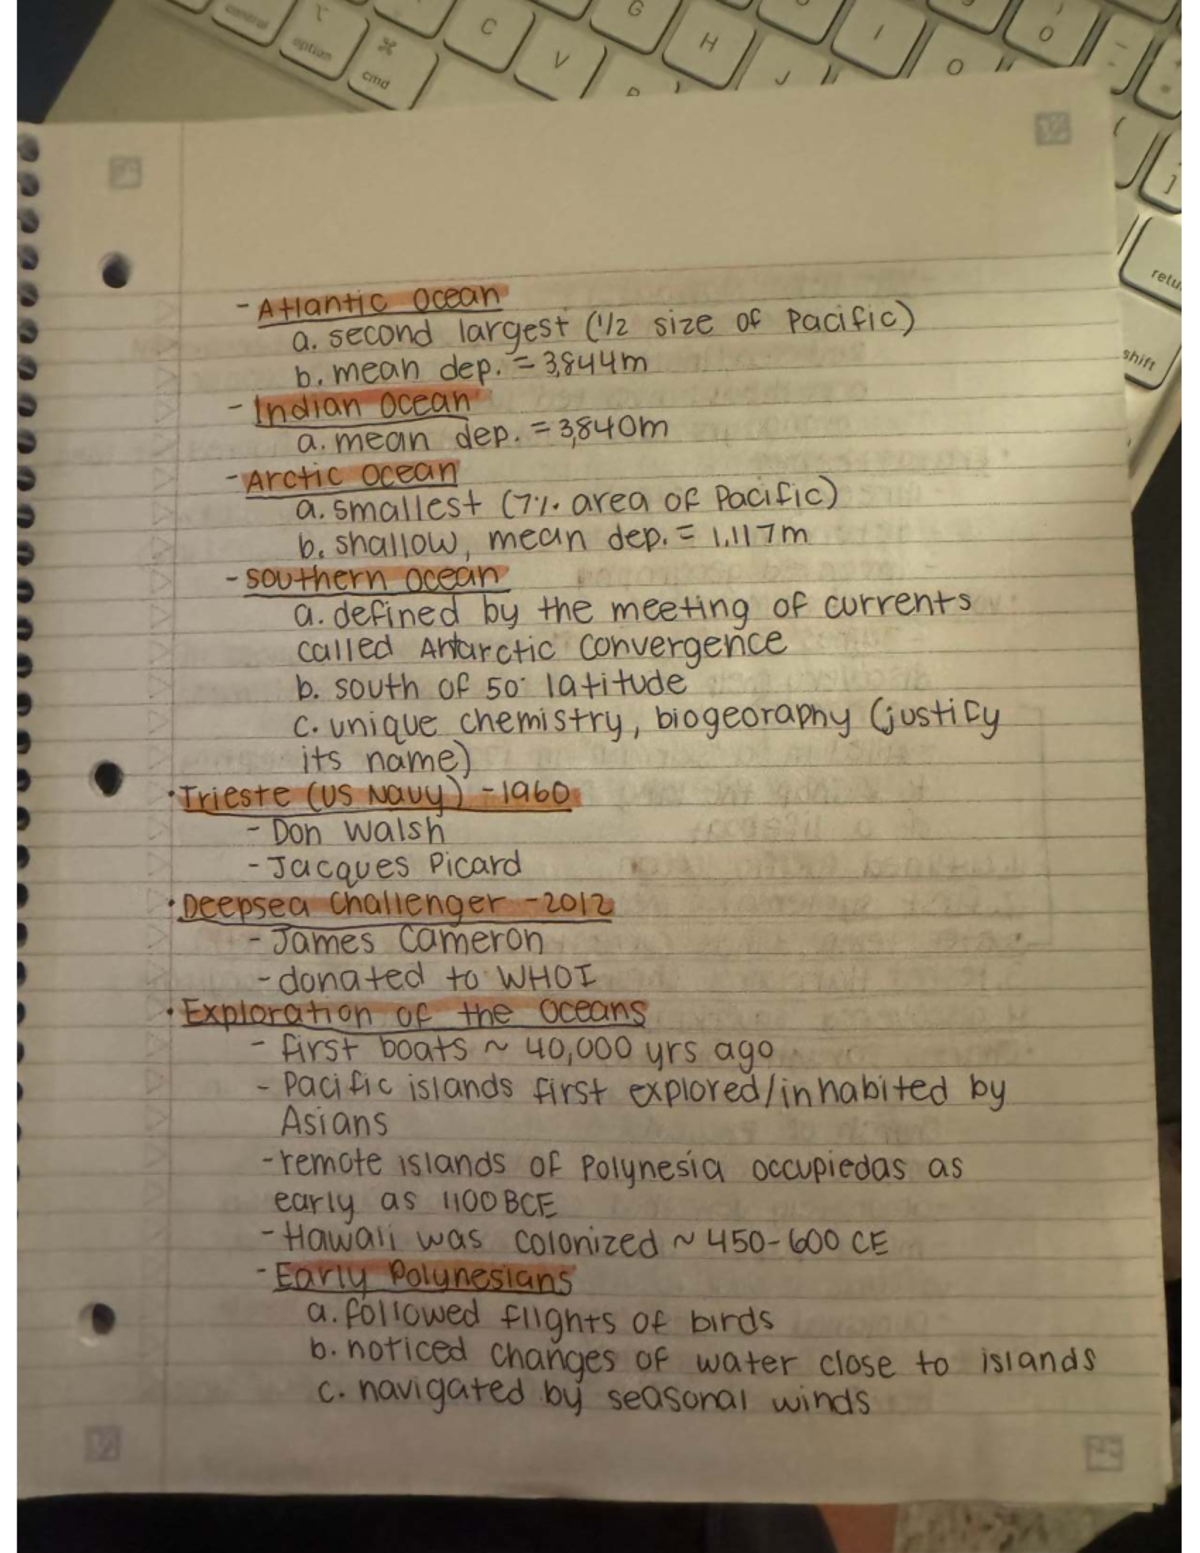 control
option
cmd
C
V
G
H
J
I
O
retu
shift
- Atlantic Ocean
a. second largest (1/2 size of Pacific)
b. mean dep. = 3,844m
- Indian Ocean
a. mean dep. = 3,840m
- Arctic Ocean
a. smallest (7% area of Pacific)
b. shallow, mean dep. = 1,117m
- Southern Ocean
a. defined by the meeting of currents
called Antarctic Convergence
b. south of 50° latitude
c. unique chemistry, biogeoraphy (justify
its name)
• Trieste (US Navy) - 1960
- Don Walsh
- Jacques Picard
• Deepsea Challenger - 2012
- James Cameron
- donated to WHOI
• Exploration of the Oceans
- first boats ~ 40,000 yrs ago
- Pacific islands first explored/inhabited by
Asians
- remote islands of Polynesia occupiedas as
early as 1100 BCE
- Hawaii was colonized ~ 450-600 CE
- Early Polynesians
a. followed flights of birds
b. noticed changes of water close to islands
c. navigated by seasonal winds